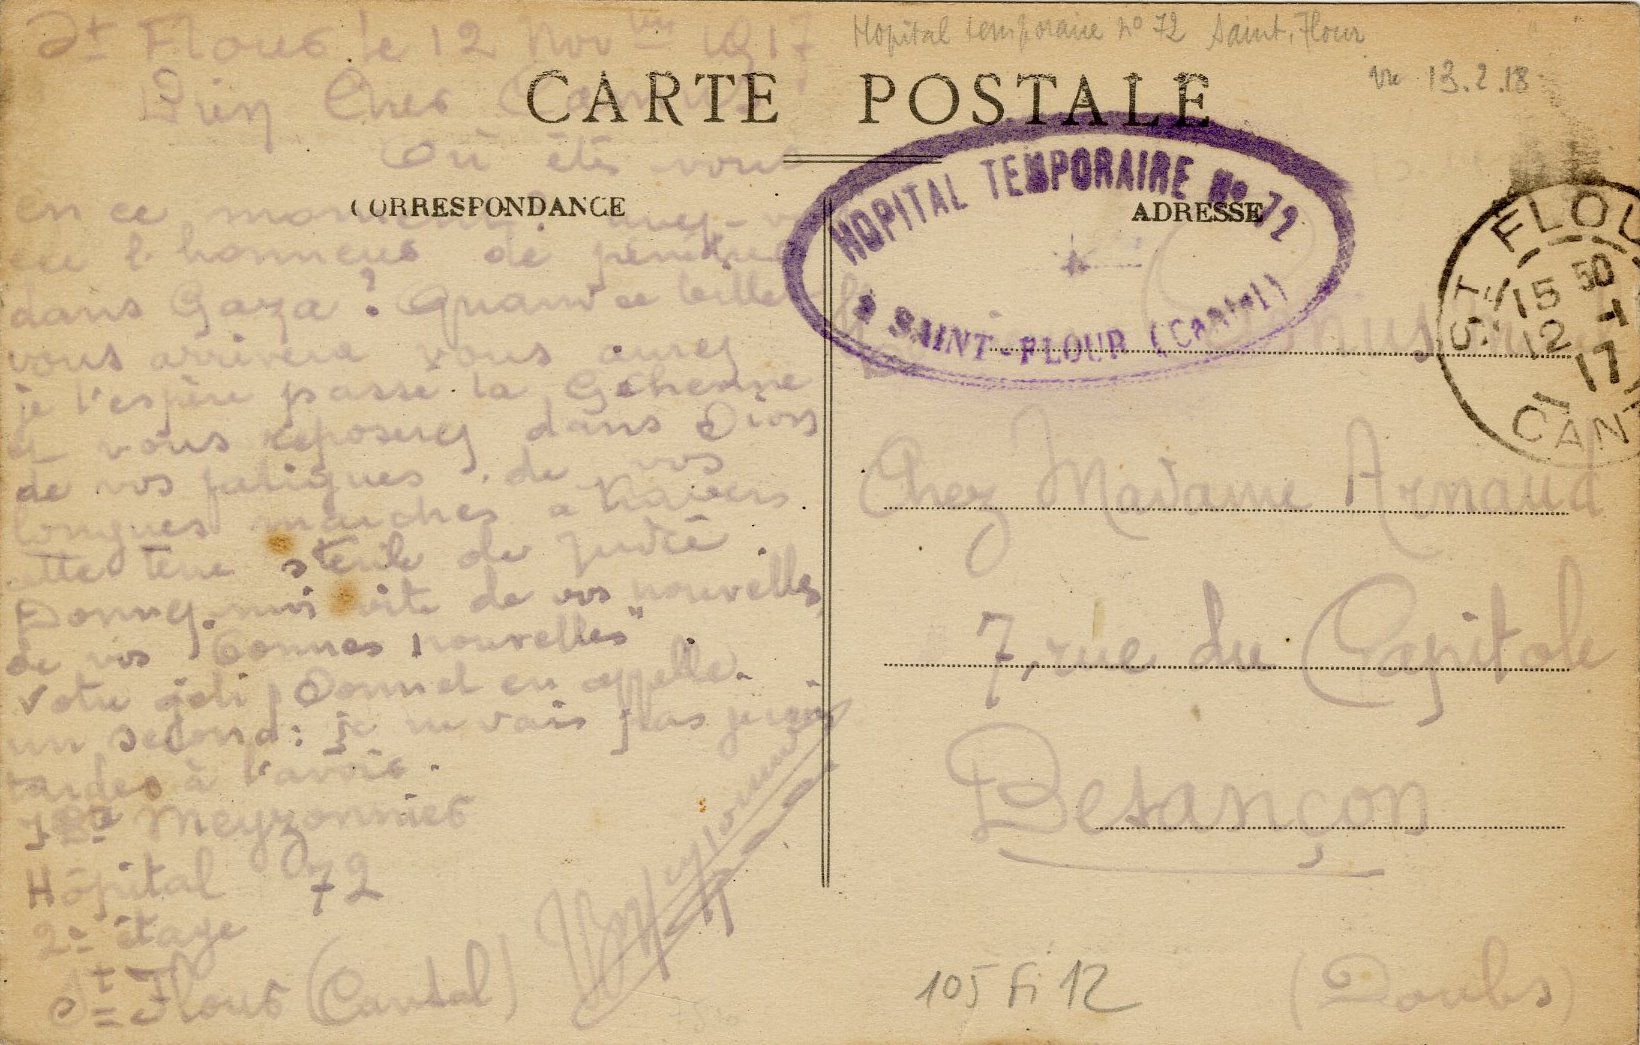 St Flour le 12 Nov bre 1917
Hopital temporaire n° 72 Saint-Flour
vu 13.2.18
Bien Cher
CARTE POSTALE
Où êtes vous
CORRESPONDANCE
ADRESSE
HOPITAL TEMPORAIRE No 72
SAINT-FLOUR (Cantal)
ST FLOUR
15 50
12 -1
17
CANT
en ce moment
eu l'honneur de pénétrer
dans Gaza ? Quand ce billet
vous arrivera vous aurez
je l'espère passé la Géhenne
et vous reposerez dans Sion
de vos fatigues, de vos
longues marches à travers
cette terre stérile de Judée.
Donnez-moi vite de vos nouvelles
de vos "bonnes nouvelles"
Votre joli sonnet en appelle
un second: je ne vais pas
tarder à l'avoir.
Meyzonnier
Hôpital 72
2e étage
St Flour (Cantal)
Meyzonnier
Chez Madame Arnaud
7, rue du Capitole
Besançon
(Doubs)
105 Fi 12